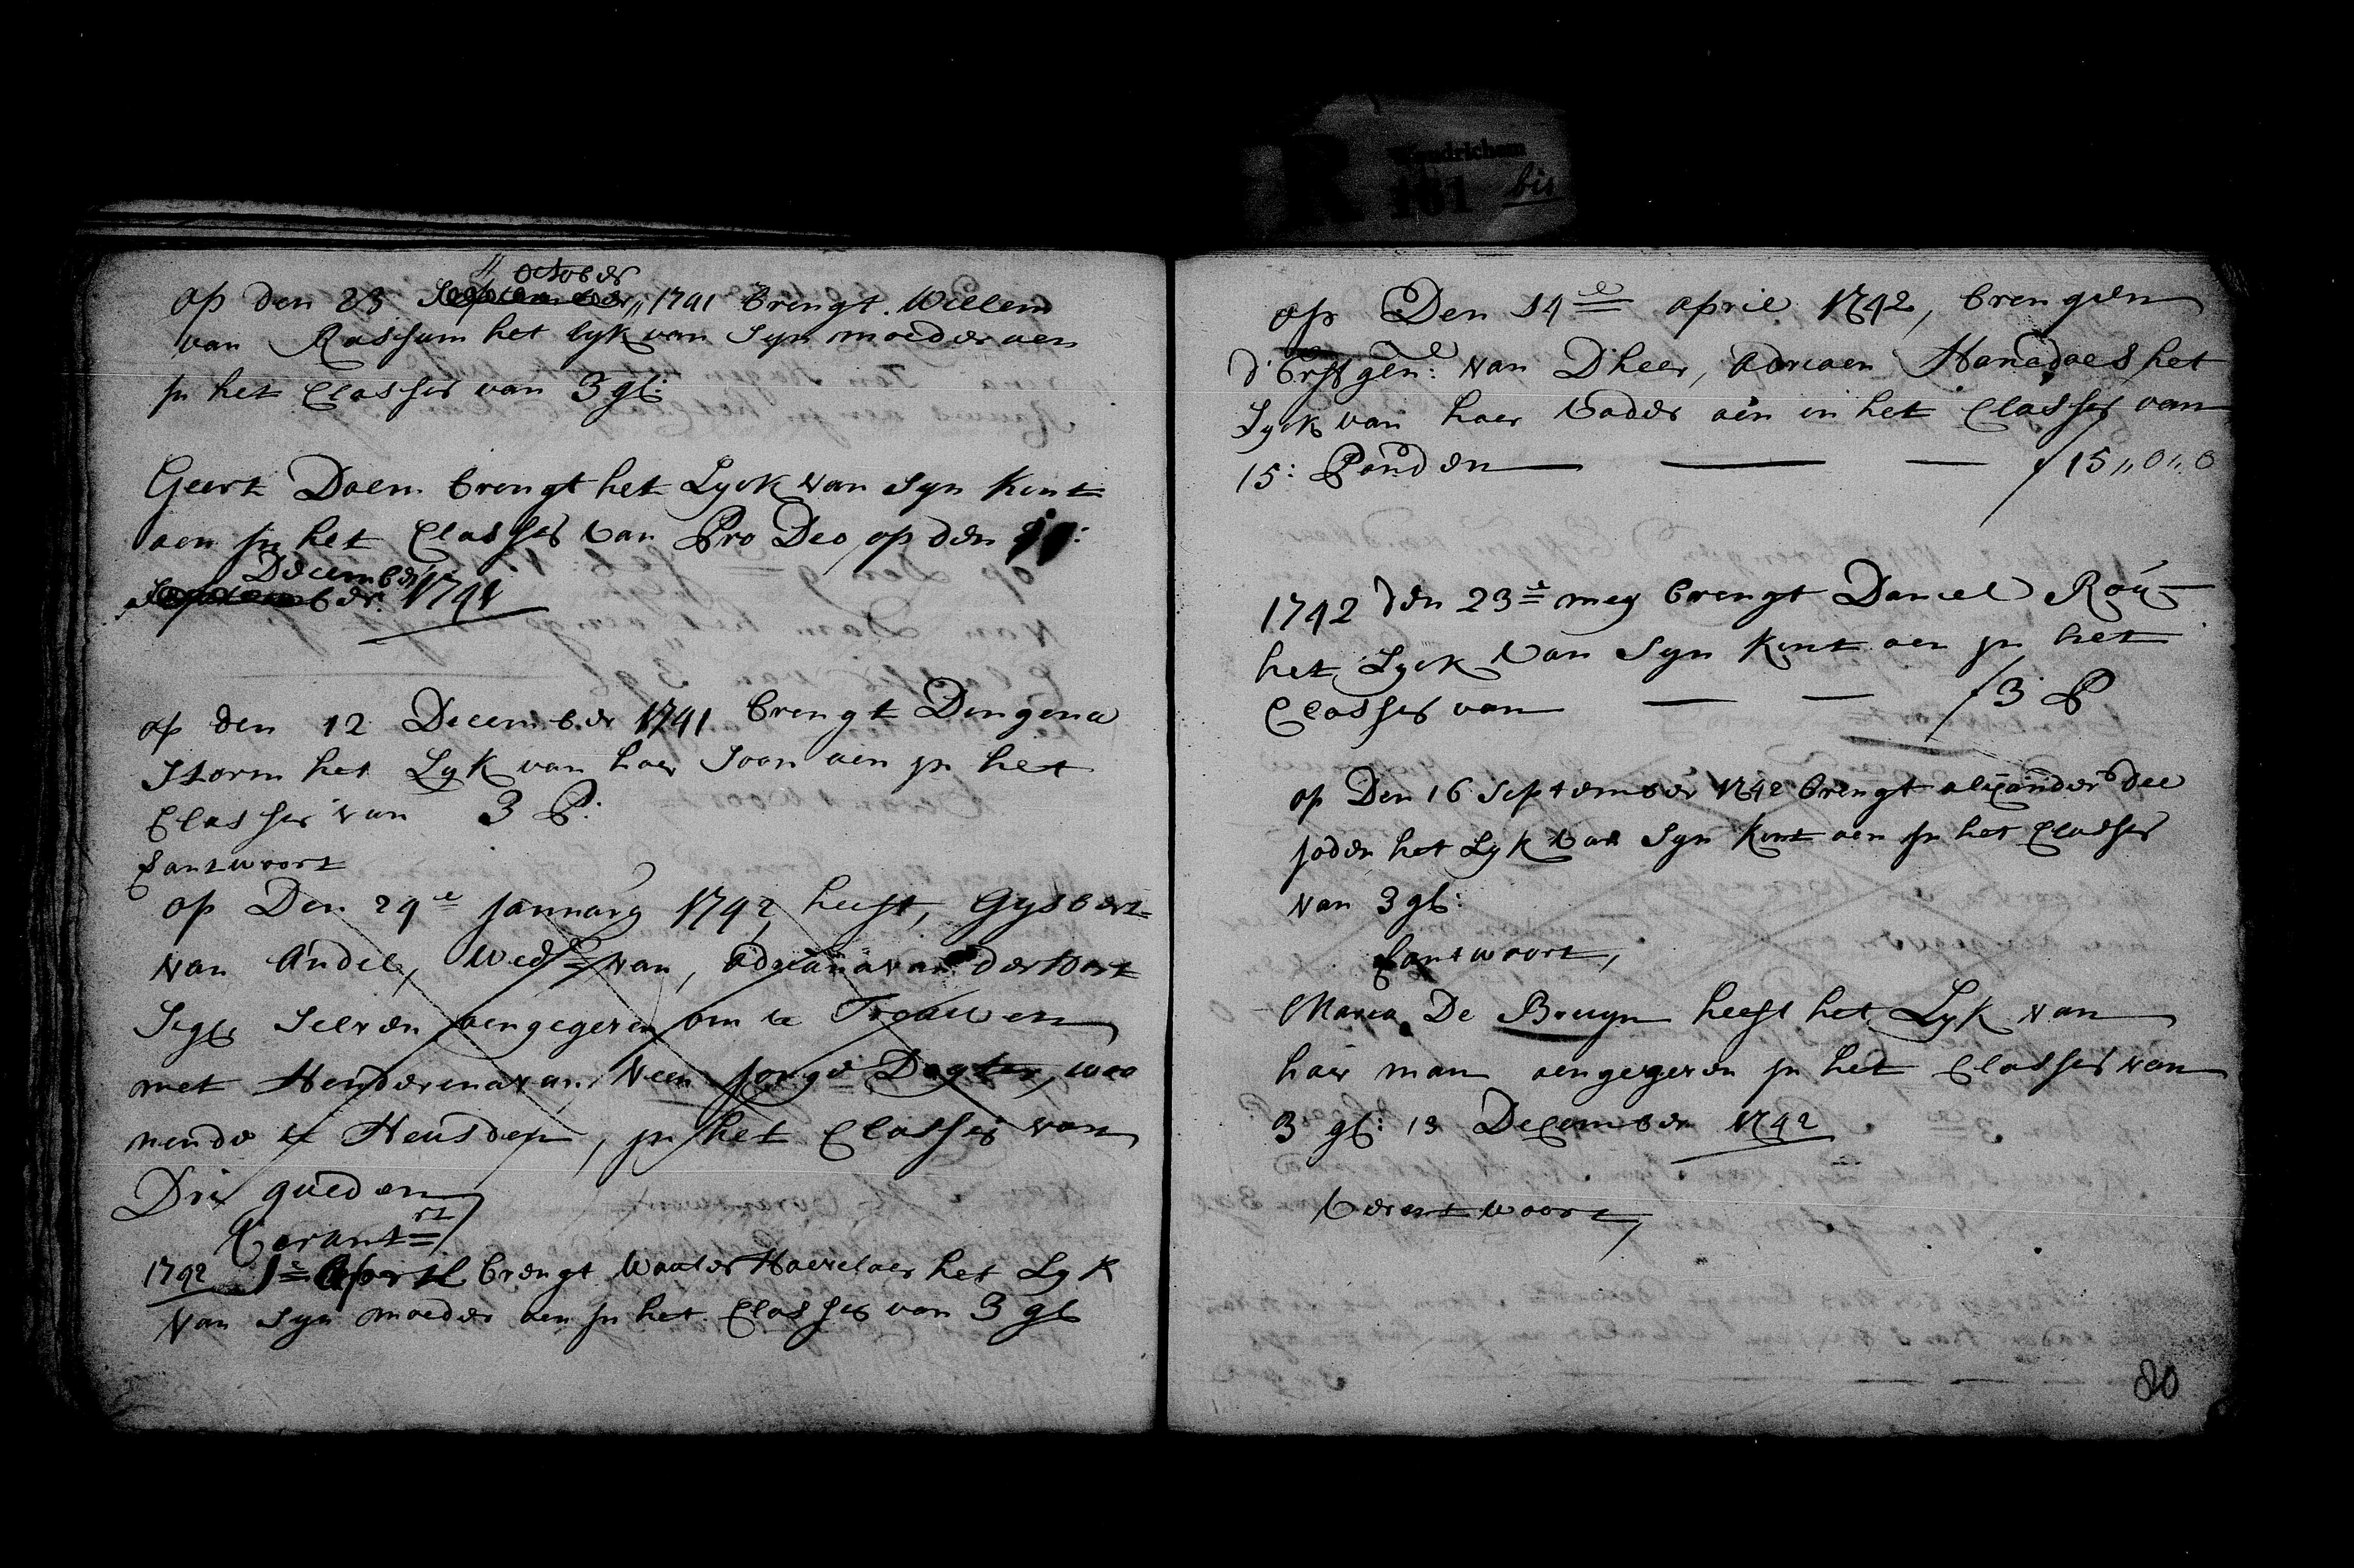 Woudrichem
R 161 bis
october
op den 23 September 1741 brengt Willem
van Rossum het lyk van Syn moeder aen
jn het Classes van 3 gl:
Geert Daem brengt het Lyck van Syn Kint
aen jn het Classes van Pro Deo op den
December
September 1741
op den 12 December 1741 brengt Dingena
Storm het Lyk van haer Soon aen jn het
Classes van 3 P:
Vantwoort
op Den 29e January 1742, heeft, Gysbert
van Andel, Wedr van, Adriana van der
Sigh Selven aengegeven om te Trouwen
met Henderena van Veen Jonge Dogter, woo
nende te Heusden, jn het Classes van
Drie gulden
Verantrt
1742 1e April brengt Wouter Haeselaer het Lyk
van Syn moeder aen jn het Classes van 3 gl
op Den 14e april 1742, brengen
d'Erfgen: van Dheer, Adriaen Hanedoes het
Lyck van haer Vader aen in het Classes van
15: Ponden f 15,,0,,0
1742 den 23e mey brengt Daniel
het Lyck van Syn Kint aen jn het
Classes van f 3 P
op Den 16 September 1742 brengt alexander dee
joden het Lyk van Syn Kint aen jn het Classes
van 3 gl:
Vantwoort,
Maria De Bruyn heeft het Lyk van
haer man aengegeven jn het Classes van
3 gl: 13 December 1742
Verantwoort,
80